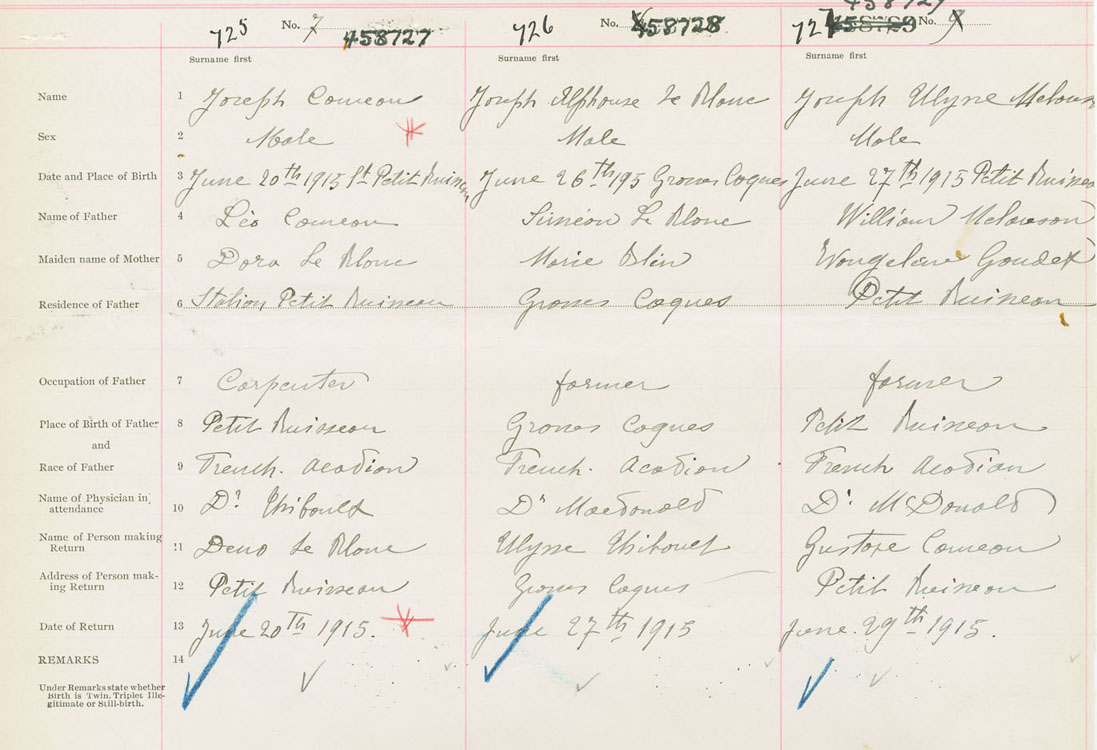 725 No. 7 458727 726 No. 458728 727 No. 9
Surname first Surname first Surname first
Name 1 Joseph Comeau Joseph Alphonse Le Blanc Joseph Ulysse Melanson
Sex 2 Male Male Male
Date and Place of Birth 3 June 20th 1915 St Petit Ruisseau June 26th 195 Grosses Coques June 27th 1915 Petit Ruisseau
Name of Father 4 Léo Comeau Simeon Le Blanc William Melanson
Maiden name of Mother 5 Dora Le Blanc Marie Blin Evangeline Goudet
Residence of Father 6 Station Petit Ruisseau Grosses Coques Petit Ruisseau
Occupation of Father 7 Carpenter farmer farmer
Place of Birth of Father 8 Petit Ruisseau Grosses Coques Petit Ruisseau
and
Race of Father 9 French. Acadian French. Acadian French Acadian
Name of Physician in attendance 10 Dr Thibault Dr Macdonald Dr McDonald
Name of Person making Return 11 Le Blanc Ulysse Thibault Gustave Comeau
Address of Person making Return 12 Petit Ruisseau Grosses Coques Petit Ruisseau
Date of Return 13 June 20th 1915. June 27th 1915 June. 29th 1915.
REMARKS 14
Under Remarks state whether
Birth is Twin. Triplet Ille-
gitimate or Still-birth.